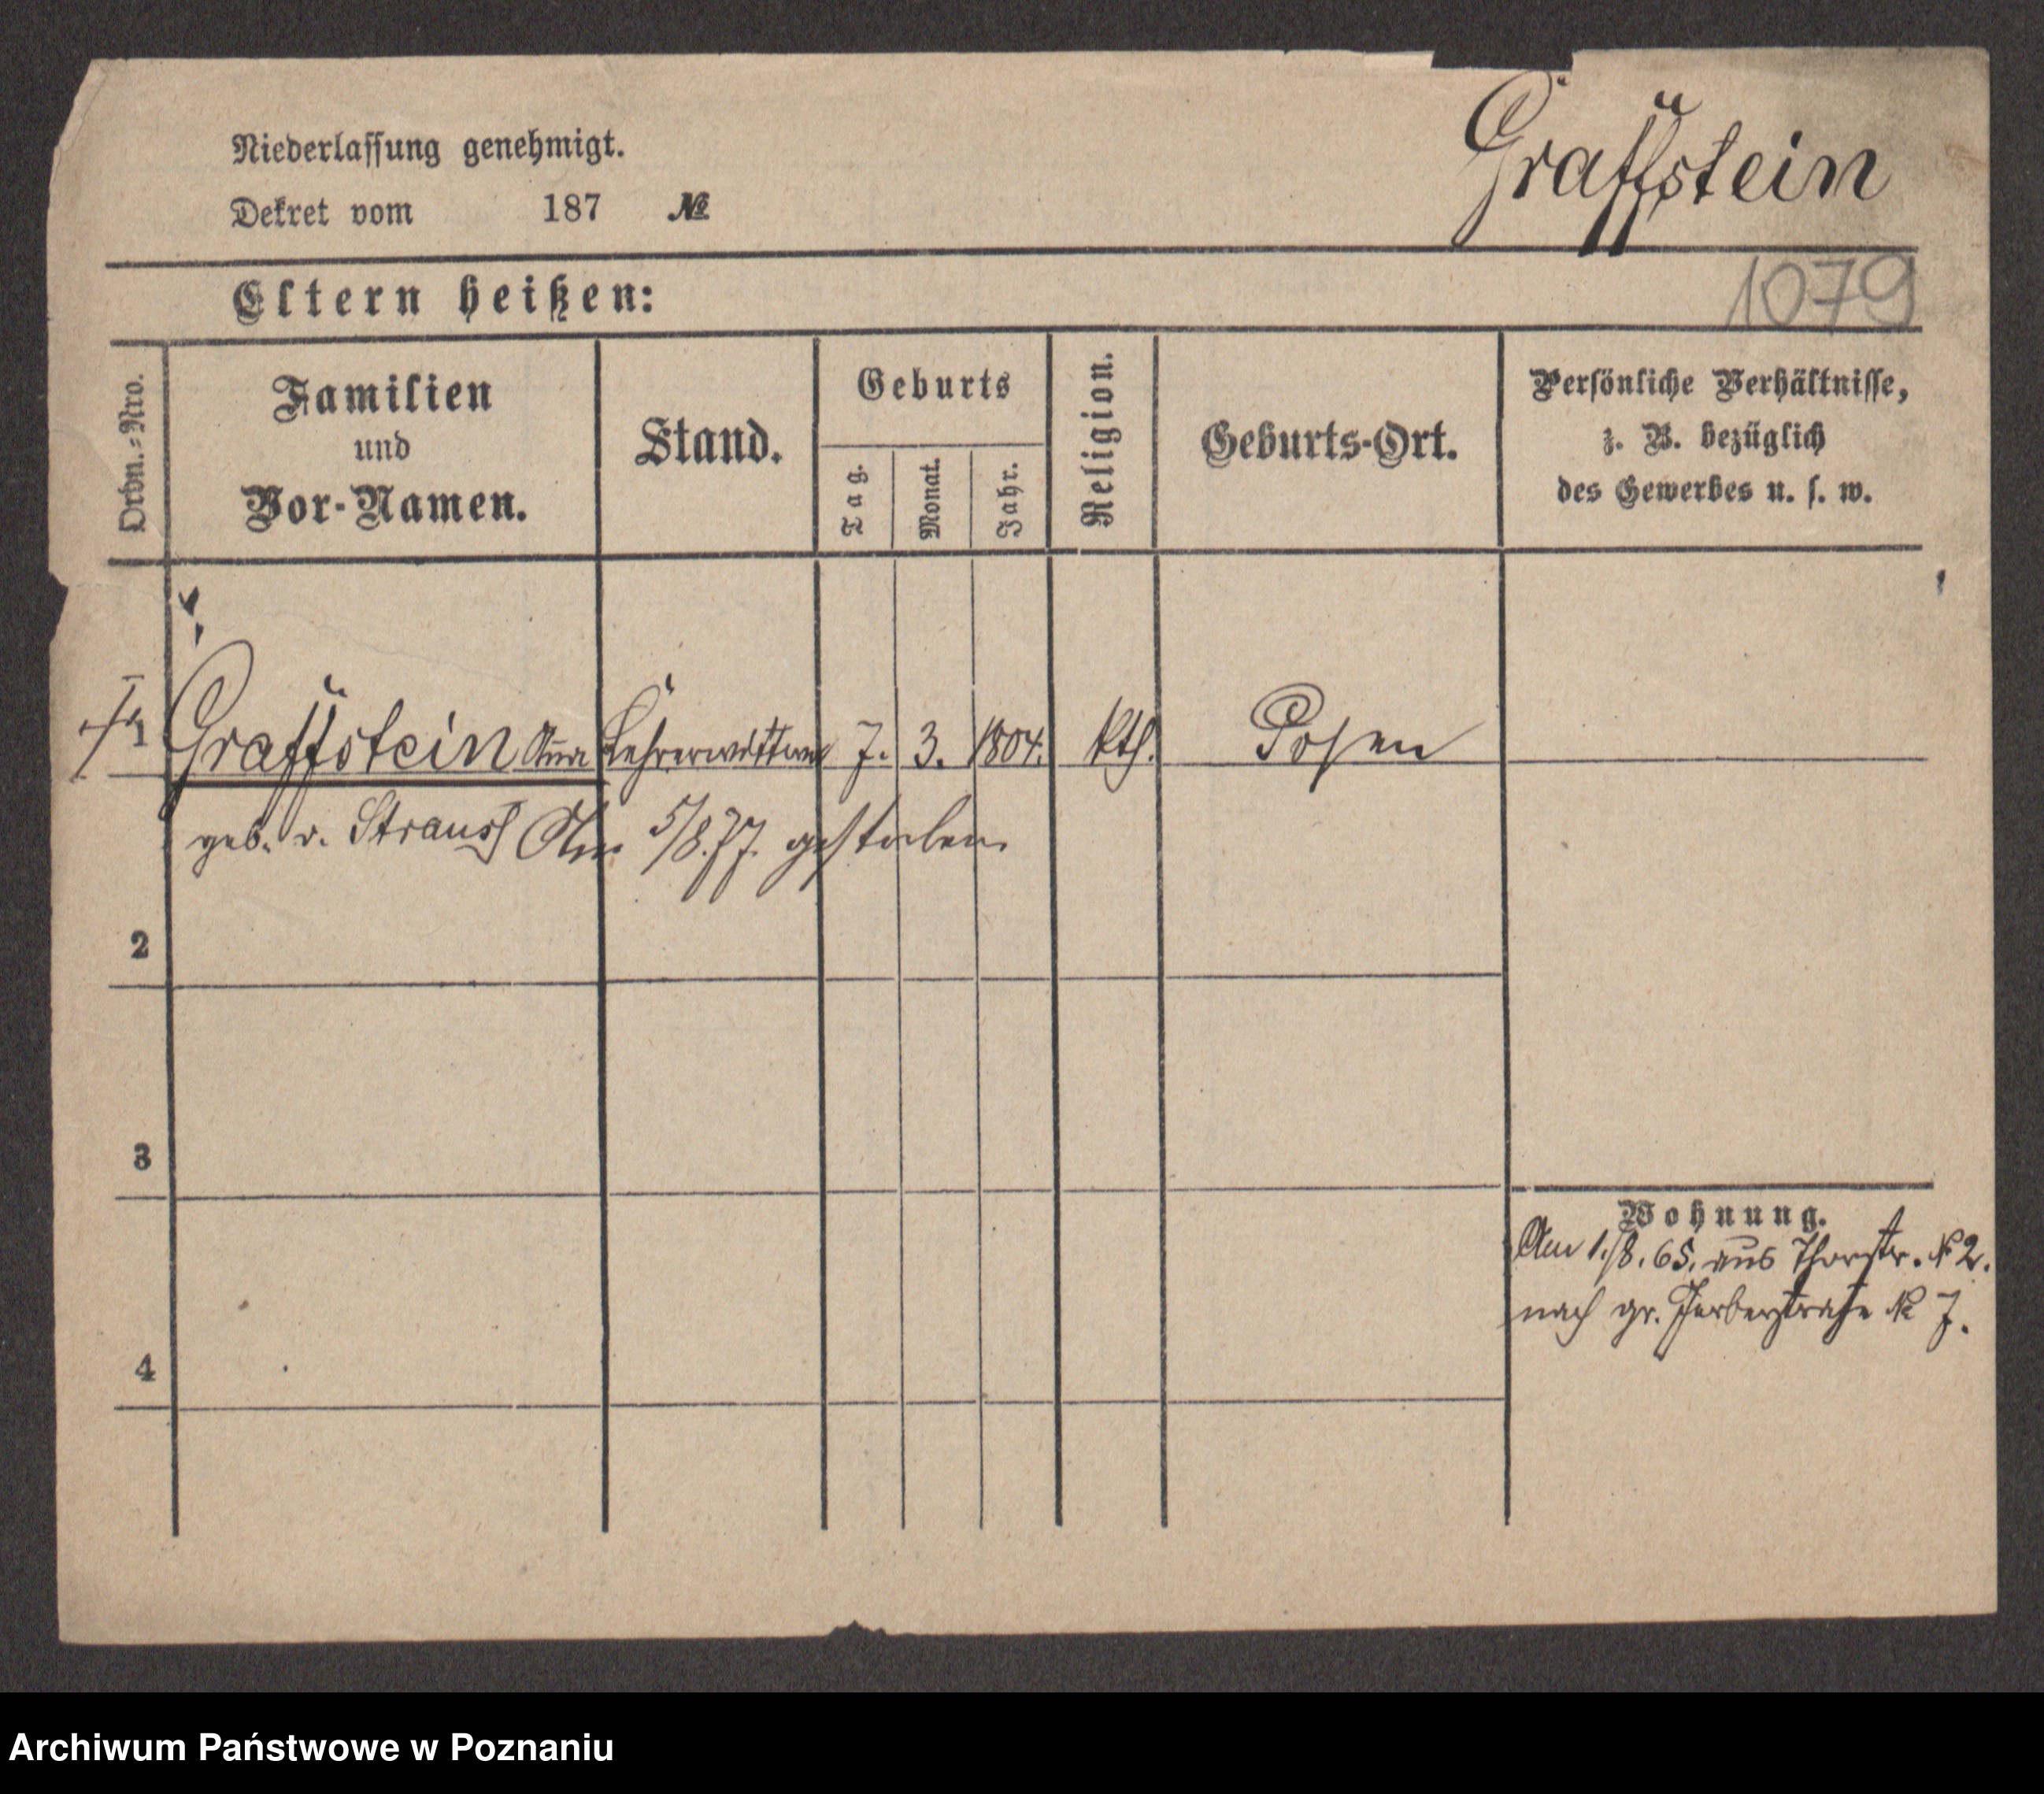 Graffstein
Niederlassung genehmigt.
Dekret vom 187 №
1079
Eltern heißen:
Ordn.-Nro.
Familien
und
Vor-Namen.
Stand.
Geburts
Tag.
Monat.
Jahr.
Religion.
Geburts-Ort.
Persönliche Verhältnisse,
z. B. bezüglich
des Gewerbes u. s. w.
1 Graffstein Anna Lehrerwittwe 7. 3. 1804. kth. Posen
geb. v. Strauss Am 5/8.77. gestorben
2
3
4
Wohnung.
Am 1./8. 65. aus Thorstr. № 2.
nach gr. Gerberstraße № 7.
Archiwum Państwowe w Poznaniu